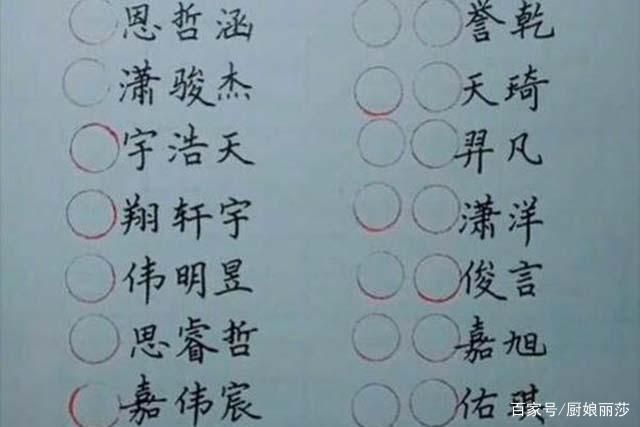 恩哲涵 誉乾
潇骏杰 天琦
宇浩天 羿凡
翔轩宇 潇洋
伟明昱 俊言
思睿哲 嘉旭
嘉伟宸 佑琪
百家号/厨娘丽莎